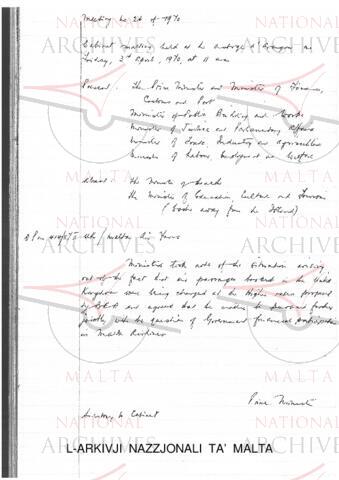 Meeting No 24 of 1970
Cabinet meeting held at the Auberge d'Aragon on
Friday, 3rd April, 1970, at 11 am
Present: The Prime Minister and Minister of Finance,
Customs and Port
Minister of Public Building and Works
Minister of Justice and Parliamentary Affairs
Minister of Trade, Industry and Agriculture
Minister of Labour, Employment and Welfare
Absent: The Minister of Health
The Minister of Education, Culture and Tourism
(Both away from the Island)
UK/Malta Air Fares
Ministers took note of the situation arising
out of the fact that air passages booked in the United
Kingdom were being charged at the higher rates proposed
by BEA and agreed that the matter be discussed further
jointly with the question of Government financial participation
in Malta Airlines
Prime Minister
Secretary to Cabinet
NATIONAL ARCHIVES
MALTA
L-ARKIVJI NAZZJONALI TA' MALTA